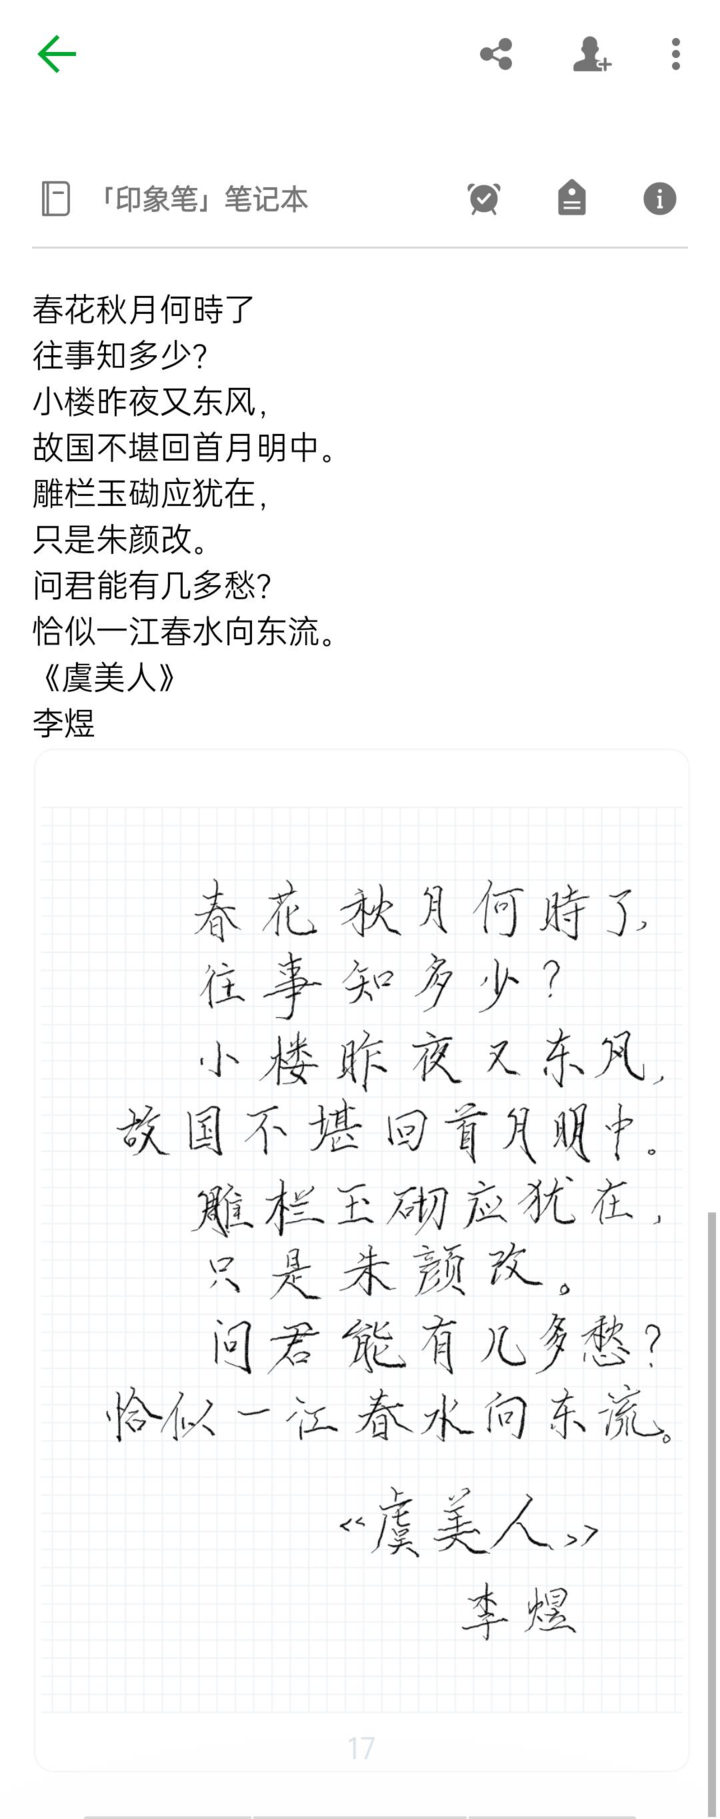 「印象笔」笔记本
春花秋月何時了
往事知多少？
小楼昨夜又东风，
故国不堪回首月明中。
雕栏玉磡应犹在，
只是朱颜改。
问君能有几多愁？
恰似一江春水向东流。
《虞美人》
李煜
春花秋月何時了，
往事知多少？
小楼昨夜又东风，
故国不堪回首月明中。
雕栏玉砌应犹在，
只是朱颜改。
问君能有几多愁？
恰似一江春水向东流。
《虞美人》
李煜
17